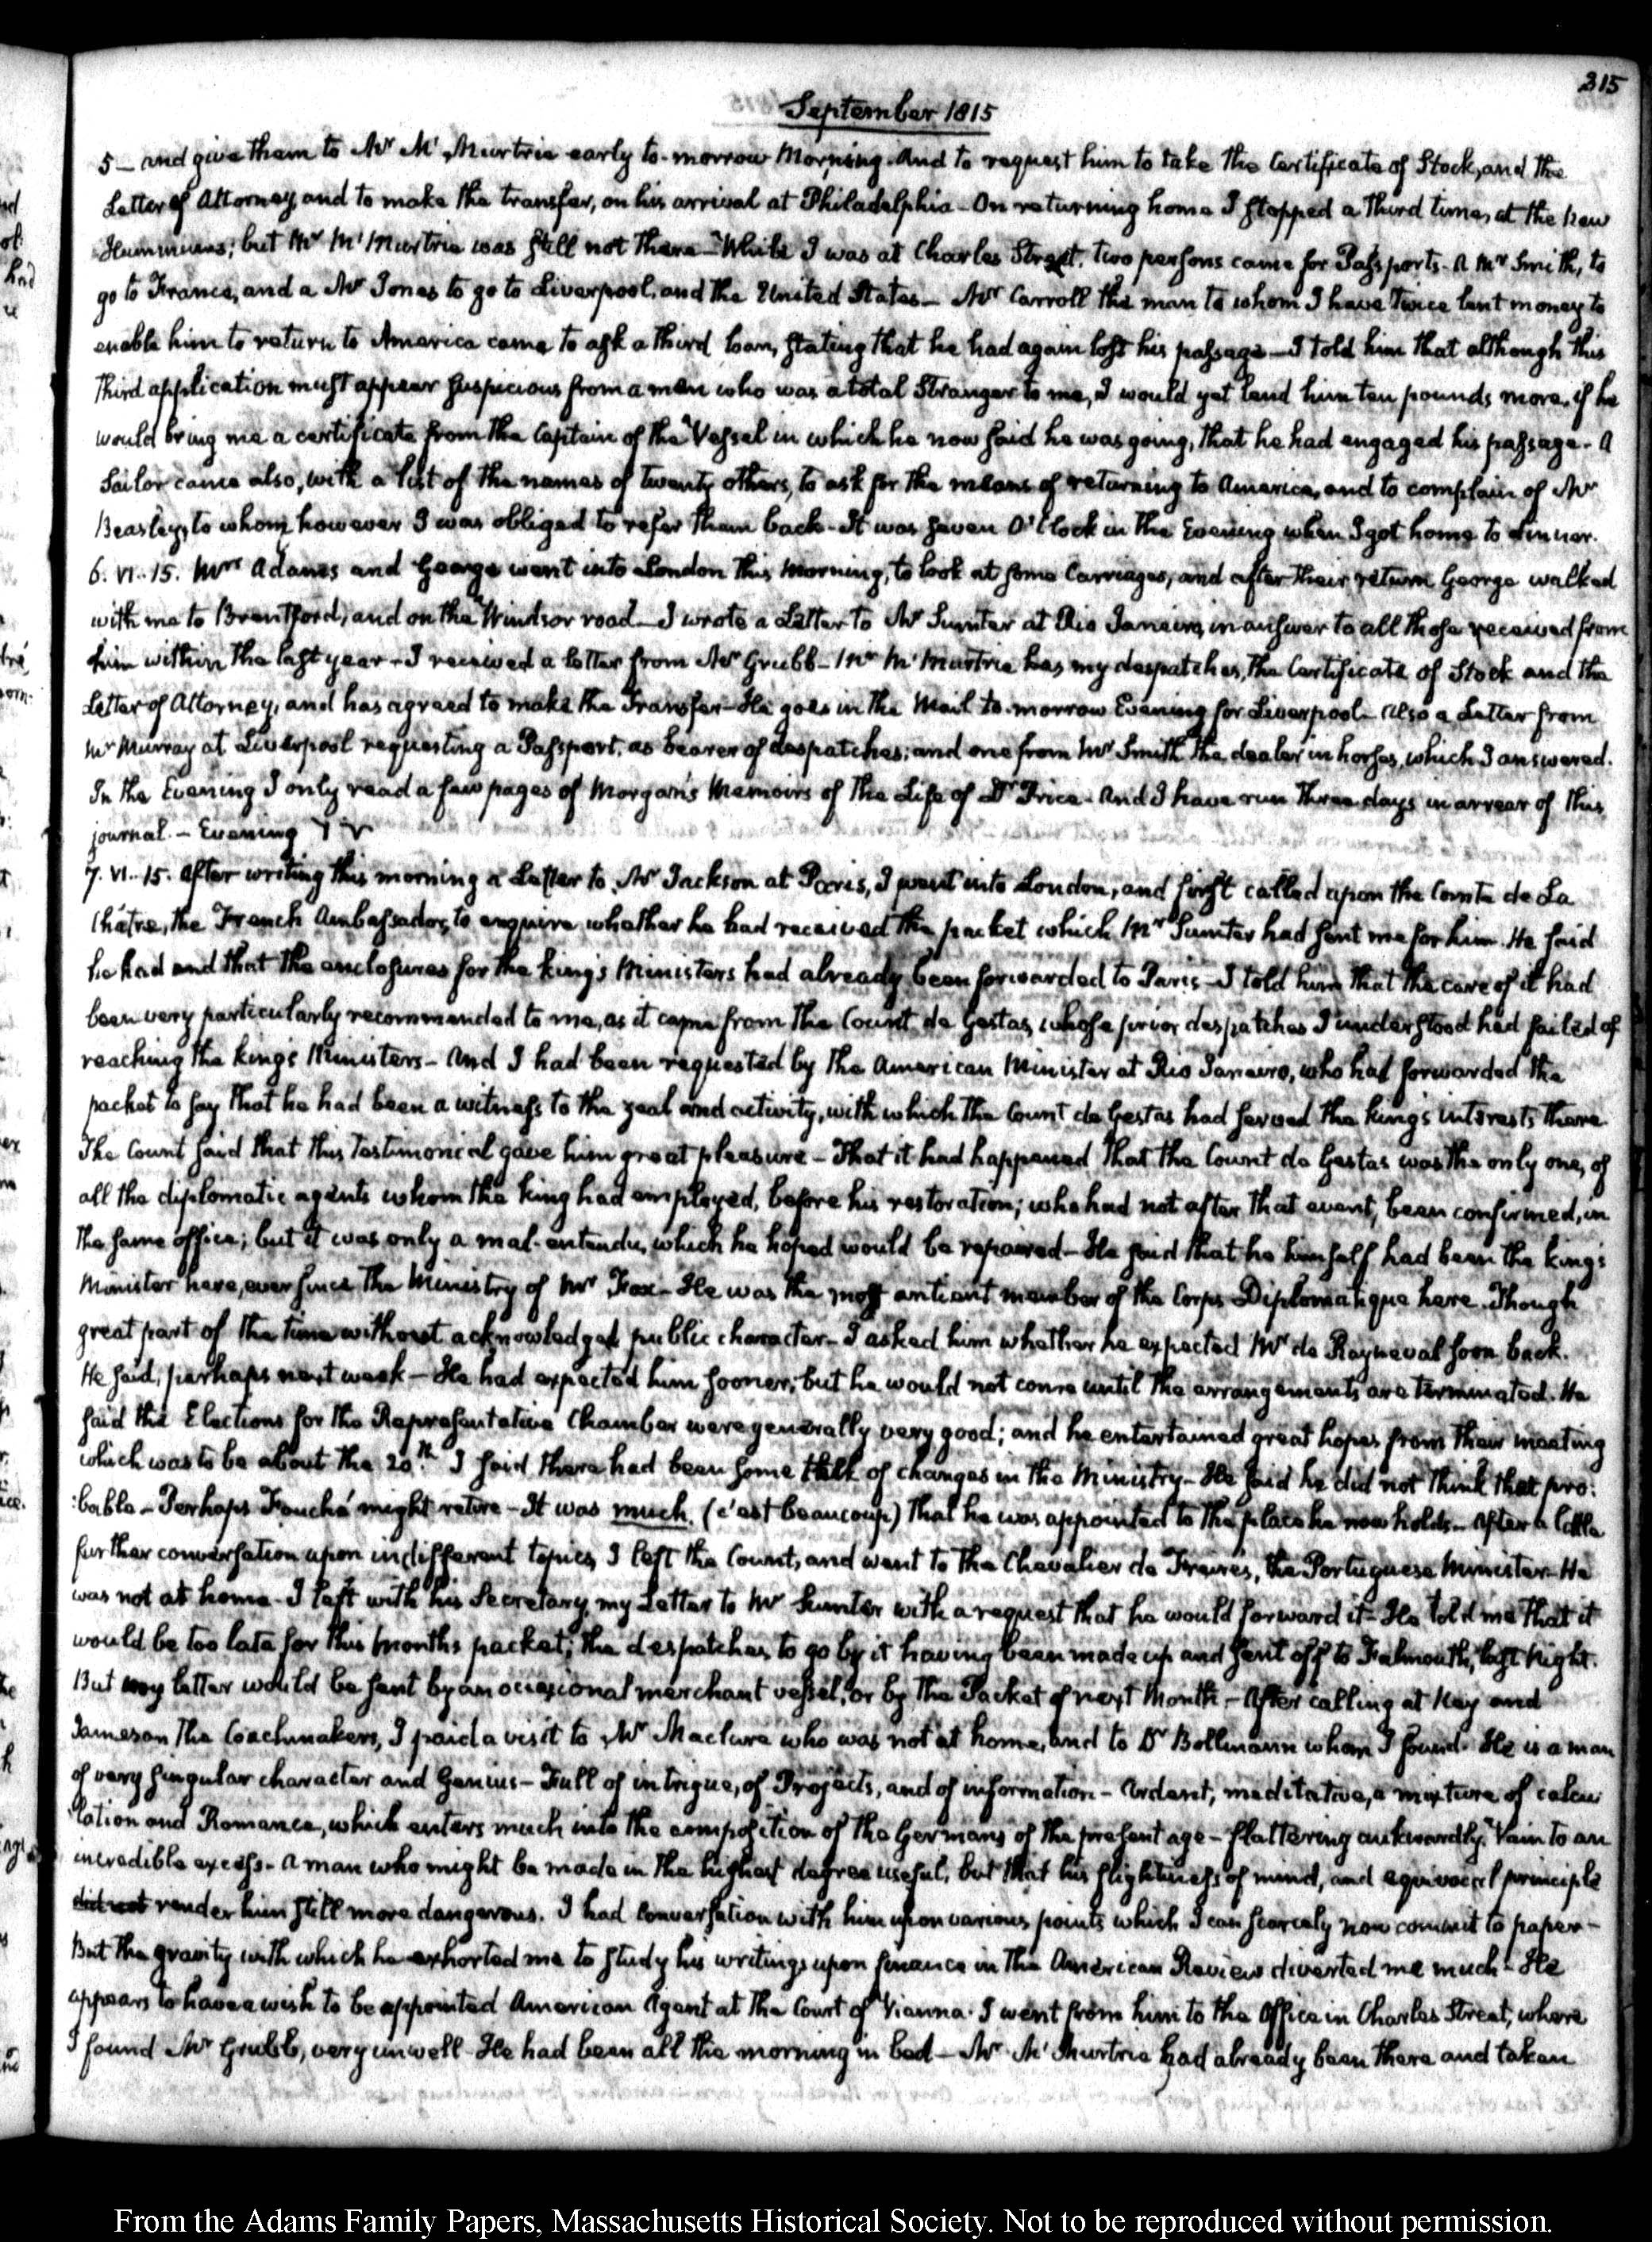 315
September 1815
5 — and give them to Mr. McMurtrie early to-morrow Morning. And to request him to take the Certificate of Stock, and the
Letter of Attorney, and to make the transfer, on his arrival at Philadelphia — On returning home I stopped a third time, at the new
Hummums; but Mr. McMurtrie was still not there — While I was at Charles Street, two persons came for Passports — A Mr Smith, to
go to France, and a Mr Jones to go to Liverpool, and the United States — Mr Carroll the man to whom I have twice lent money to
enable him to return to America came to ask a third loan, stating that he had again lost his passage — I told him that although this
third application must appear suspicious from a man who was a total Stranger to me, I would yet lend him ten pounds more, if he
would bring me a certificate from the Captain of the Vessel in which he now said he was going, that he had engaged his passage — A
Sailor came also, with a list of the names of twenty others, to ask for the means of returning to America, and to complain of Mr
Beasley, to whom however I was obliged to refer them back — It was seven O'Clock in the Evening when I got home to dinner.
6. VI. 15. Mrs Adams and George went into London this Morning, to look at some Carriages, and after their return George walked
with me to Brentford, and on the Windsor road — I wrote a Letter to Mr Sumter at Rio Janeiro, in answer to all those received from
him within the last year — I received a letter from Mr Grubb — Mr McMurtrie has my despatches, the Certificate of Stock and the
Letter of Attorney, and has agreed to make the Transfer — He goes in the Mail to-morrow Evening for Liverpool — Also a Letter from
Mr Murray at Liverpool requesting a Passport, as bearer of despatches; and one from Mr Smith the dealer in horses, which I answered.
In the Evening I only read a few pages of Morgan's Memoirs of the Life of Dr Price — And I have run three days in arrear of this
journal. — Evening
7. VI. 15. After writing this morning a Letter to Mr Jackson at Paris, I went into London, and first called upon the Comte de La
Châtre, the French Ambassador, to enquire whether he had received the packet which Mr Sumter had sent me for him. He said
he had and that the enclosures for the king's Ministers had already been forwarded to Paris — I told him that the care of it had
been very particularly recommended to me, as it came from the Count de Gestas, whose prior despatches I understood had failed of
reaching the king's Ministers — And I had been requested by the American Minister at Rio Janeiro, who had forwarded the
packet to say that he had been a witness to the zeal and activity, with which the Count de Gestas had served the king's interests there.
The Count said that this testimonial gave him great pleasure — That it had happened that the Count de Gestas was the only one, of
all the diplomatic agents whom the king had employed, before his restoration; who had not after that event, been confirmed, in
the same office; but it was only a mal-entendu, which he hoped would be repaired — He said that he himself had been the king's
Minister here, ever since the Ministry of Mr Fox — He was the most antient member of the Corps Diplomatique here. Though
great part of the time without acknowledged public character — I asked him whether he expected Mr de Rayneval soon back.
He said, perhaps next week — He had expected him sooner; but he would not come until the arrangements are terminated. He
said the Elections for the Representative Chamber were generally very good; and he entertained great hopes from their meeting
which was to be about the 20th. I said there had been some talk of changes in the Ministry — He said he did not think that pro:
:bable — Perhaps Fouché might retire — It was much, (c'est beaucoup) that he was appointed to the place he now holds — After a little
further conversation upon indifferent topics, I left the Count, and went to the Chevalier de Freires, the Portuguese Minister — He
was not at home — I left with his Secretary, my Letter to Mr Sumter with a request that he would forward it — He told me that it
would be too late for this months packet; the despatches, to go by it having been made up and sent off to Falmouth, last Night.
But my letter would be sent by an occasional merchant vessel, or by the Packet of next Month — After calling at Kay and
Jameson the Coachmakers, I paid a visit to Mr Maclure who was not at home, and to Dr Bollmann whom I found. He is a man
of very singular character and Genius — Full of intrigue, of Projects, and of information — Ardent, meditative, a mixture of calcu
:lation and Romance, which enters much into the composition of the Germans of the present age — flattering awkwardly, Vain to an
incredible excess — A man who might be made in the highest degree useful, but that his flightiness of mind, and equivocal principle
did not render him still more dangerous. I had conversation with him upon various points which I can scarcely now commit to paper —
But the gravity with which he exhorted me to study his writings upon finance in the American Review diverted me much — He
appears to have a wish to be appointed American Agent at the Court of Vienna. I went from him to the Office in Charles Street, where
I found Mr Grubb, very unwell — He had been all the morning in bed — Mr McMurtrie had already been there and taken
From the Adams Family Papers, Massachusetts Historical Society. Not to be reproduced without permission.